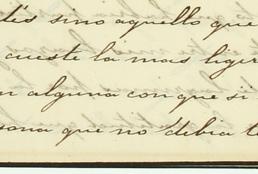 tés sino aquello que
cueste la mas liger
n alguna con que si
sona que no debia t